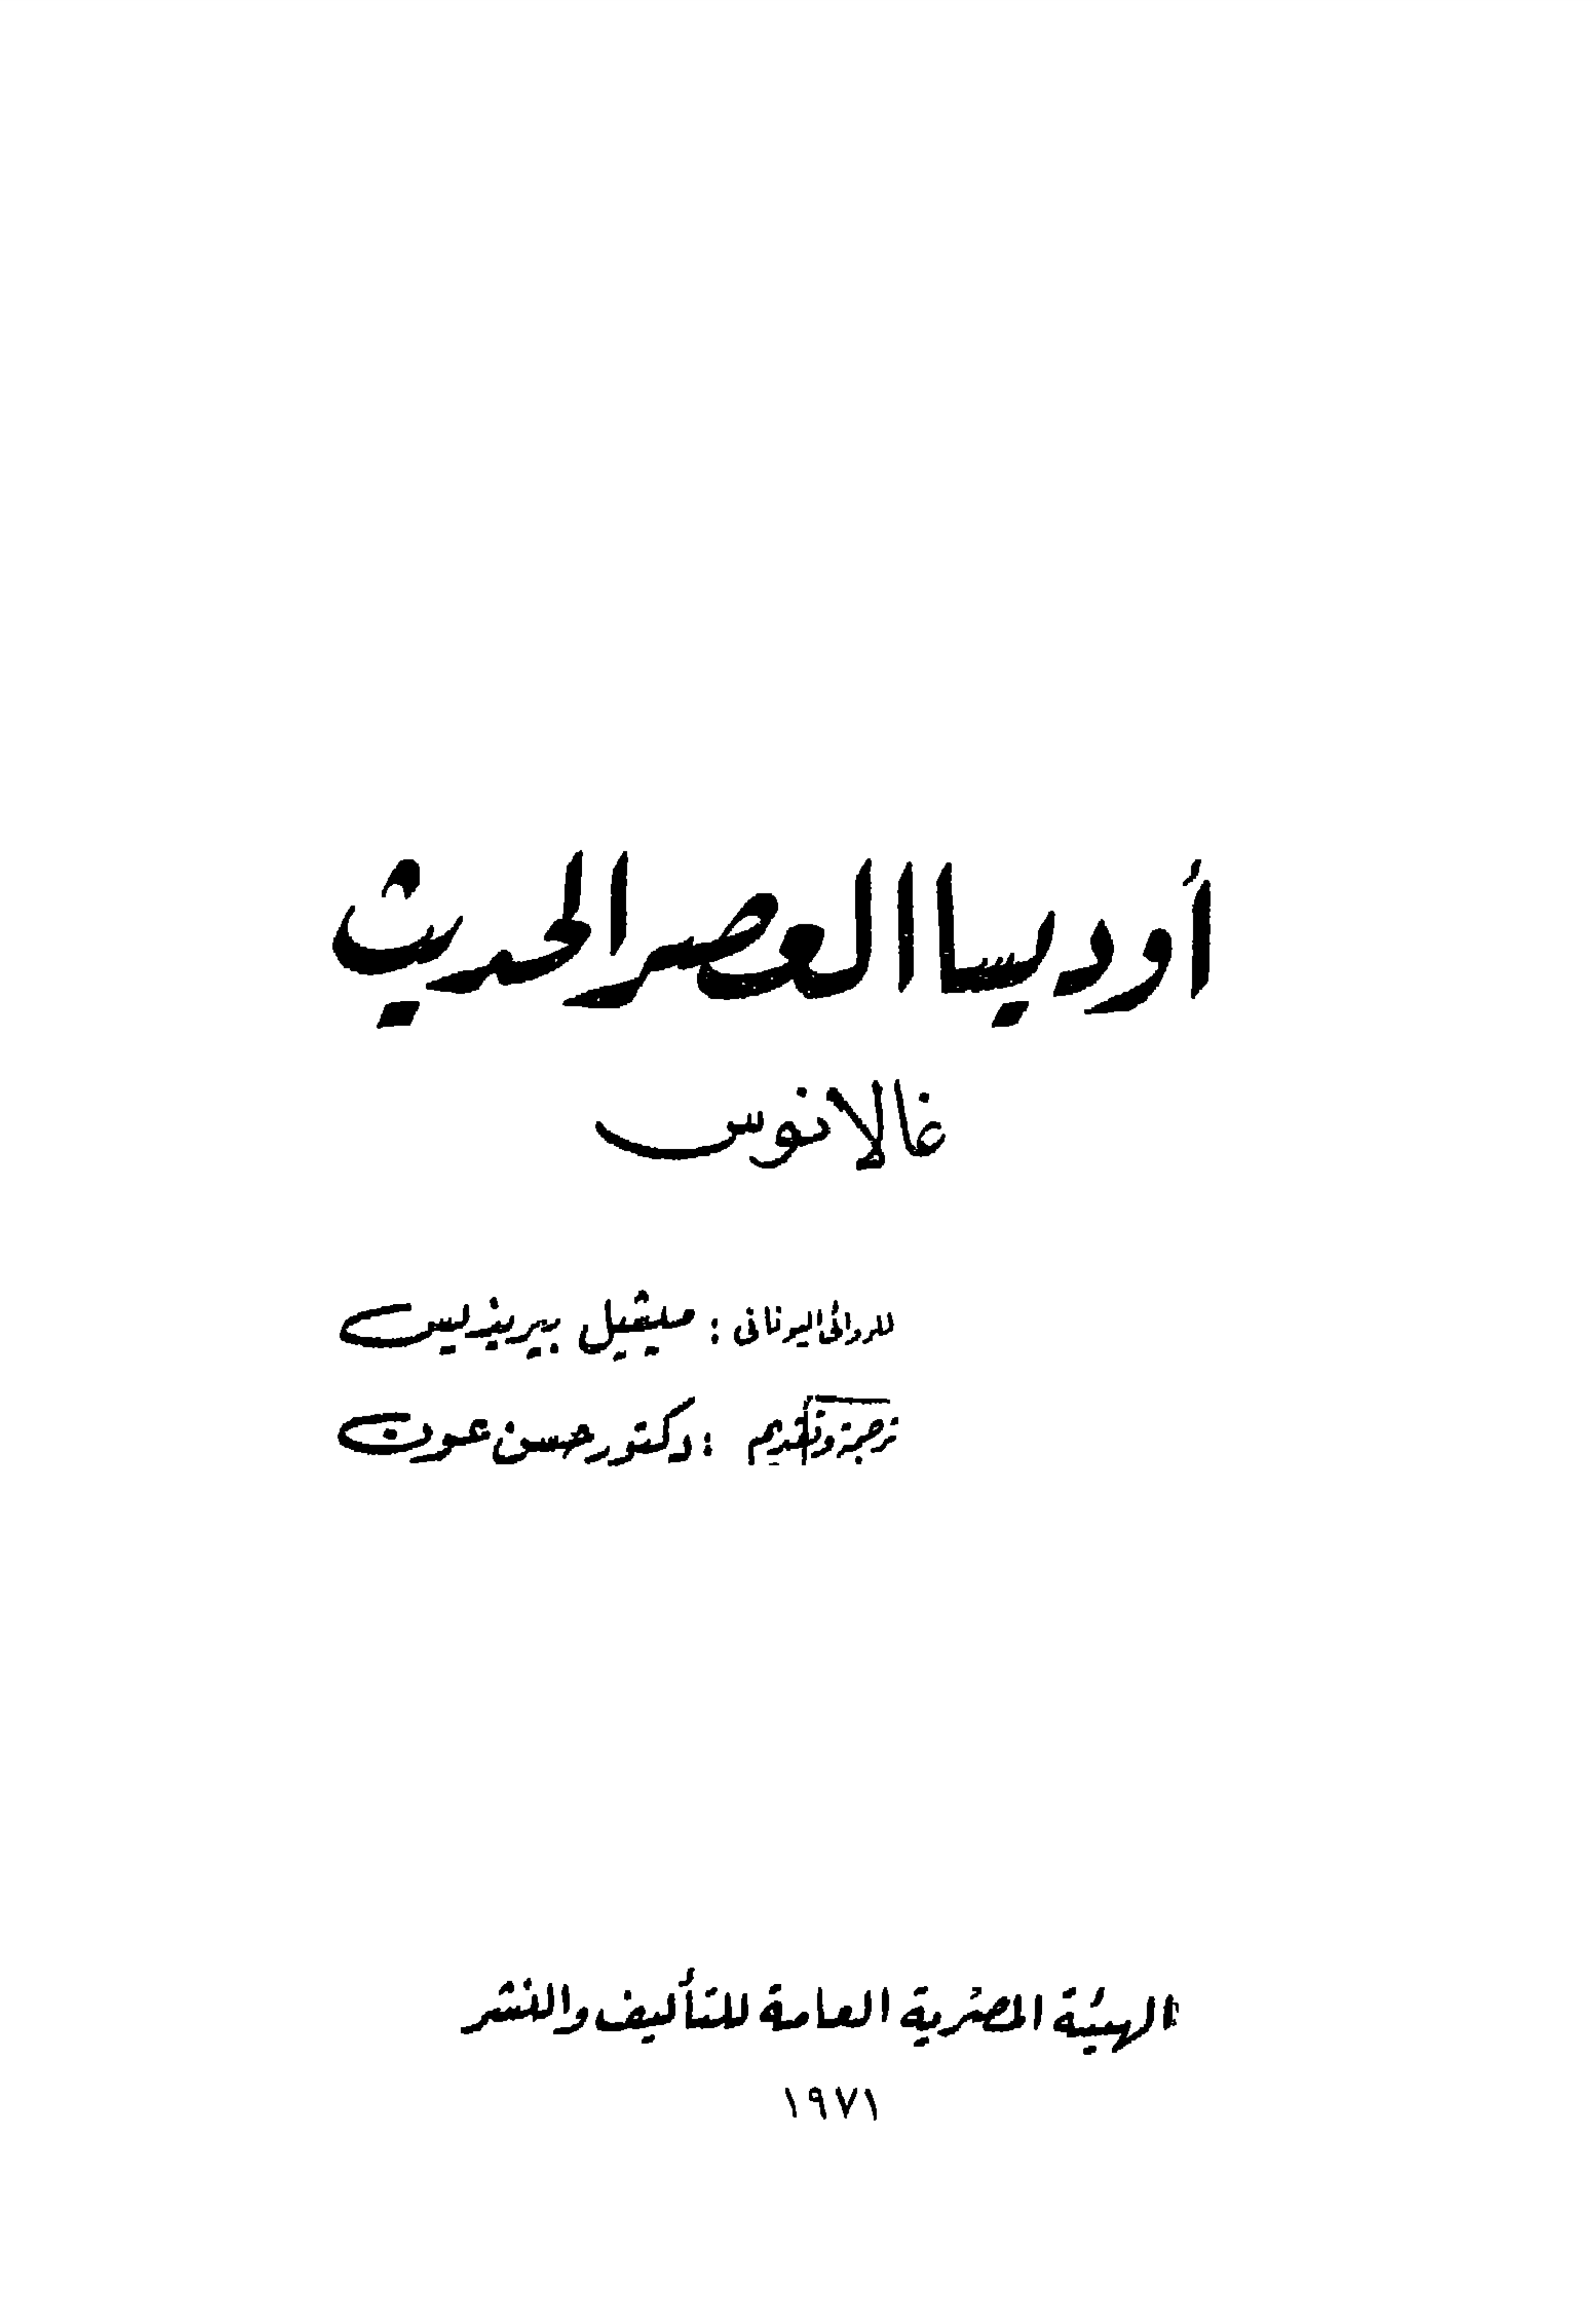 أوديسا العصر الحديث
غالانوس
للروائى اليونانى : ميشيل بيرنديس
ترجمة وتقديم : دكتور حسن عون
الهيئة المصرية العامة للتأليف والنشر
١٩٧١